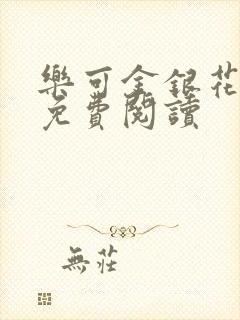 樂可金銀花
免費閱讀
無莊